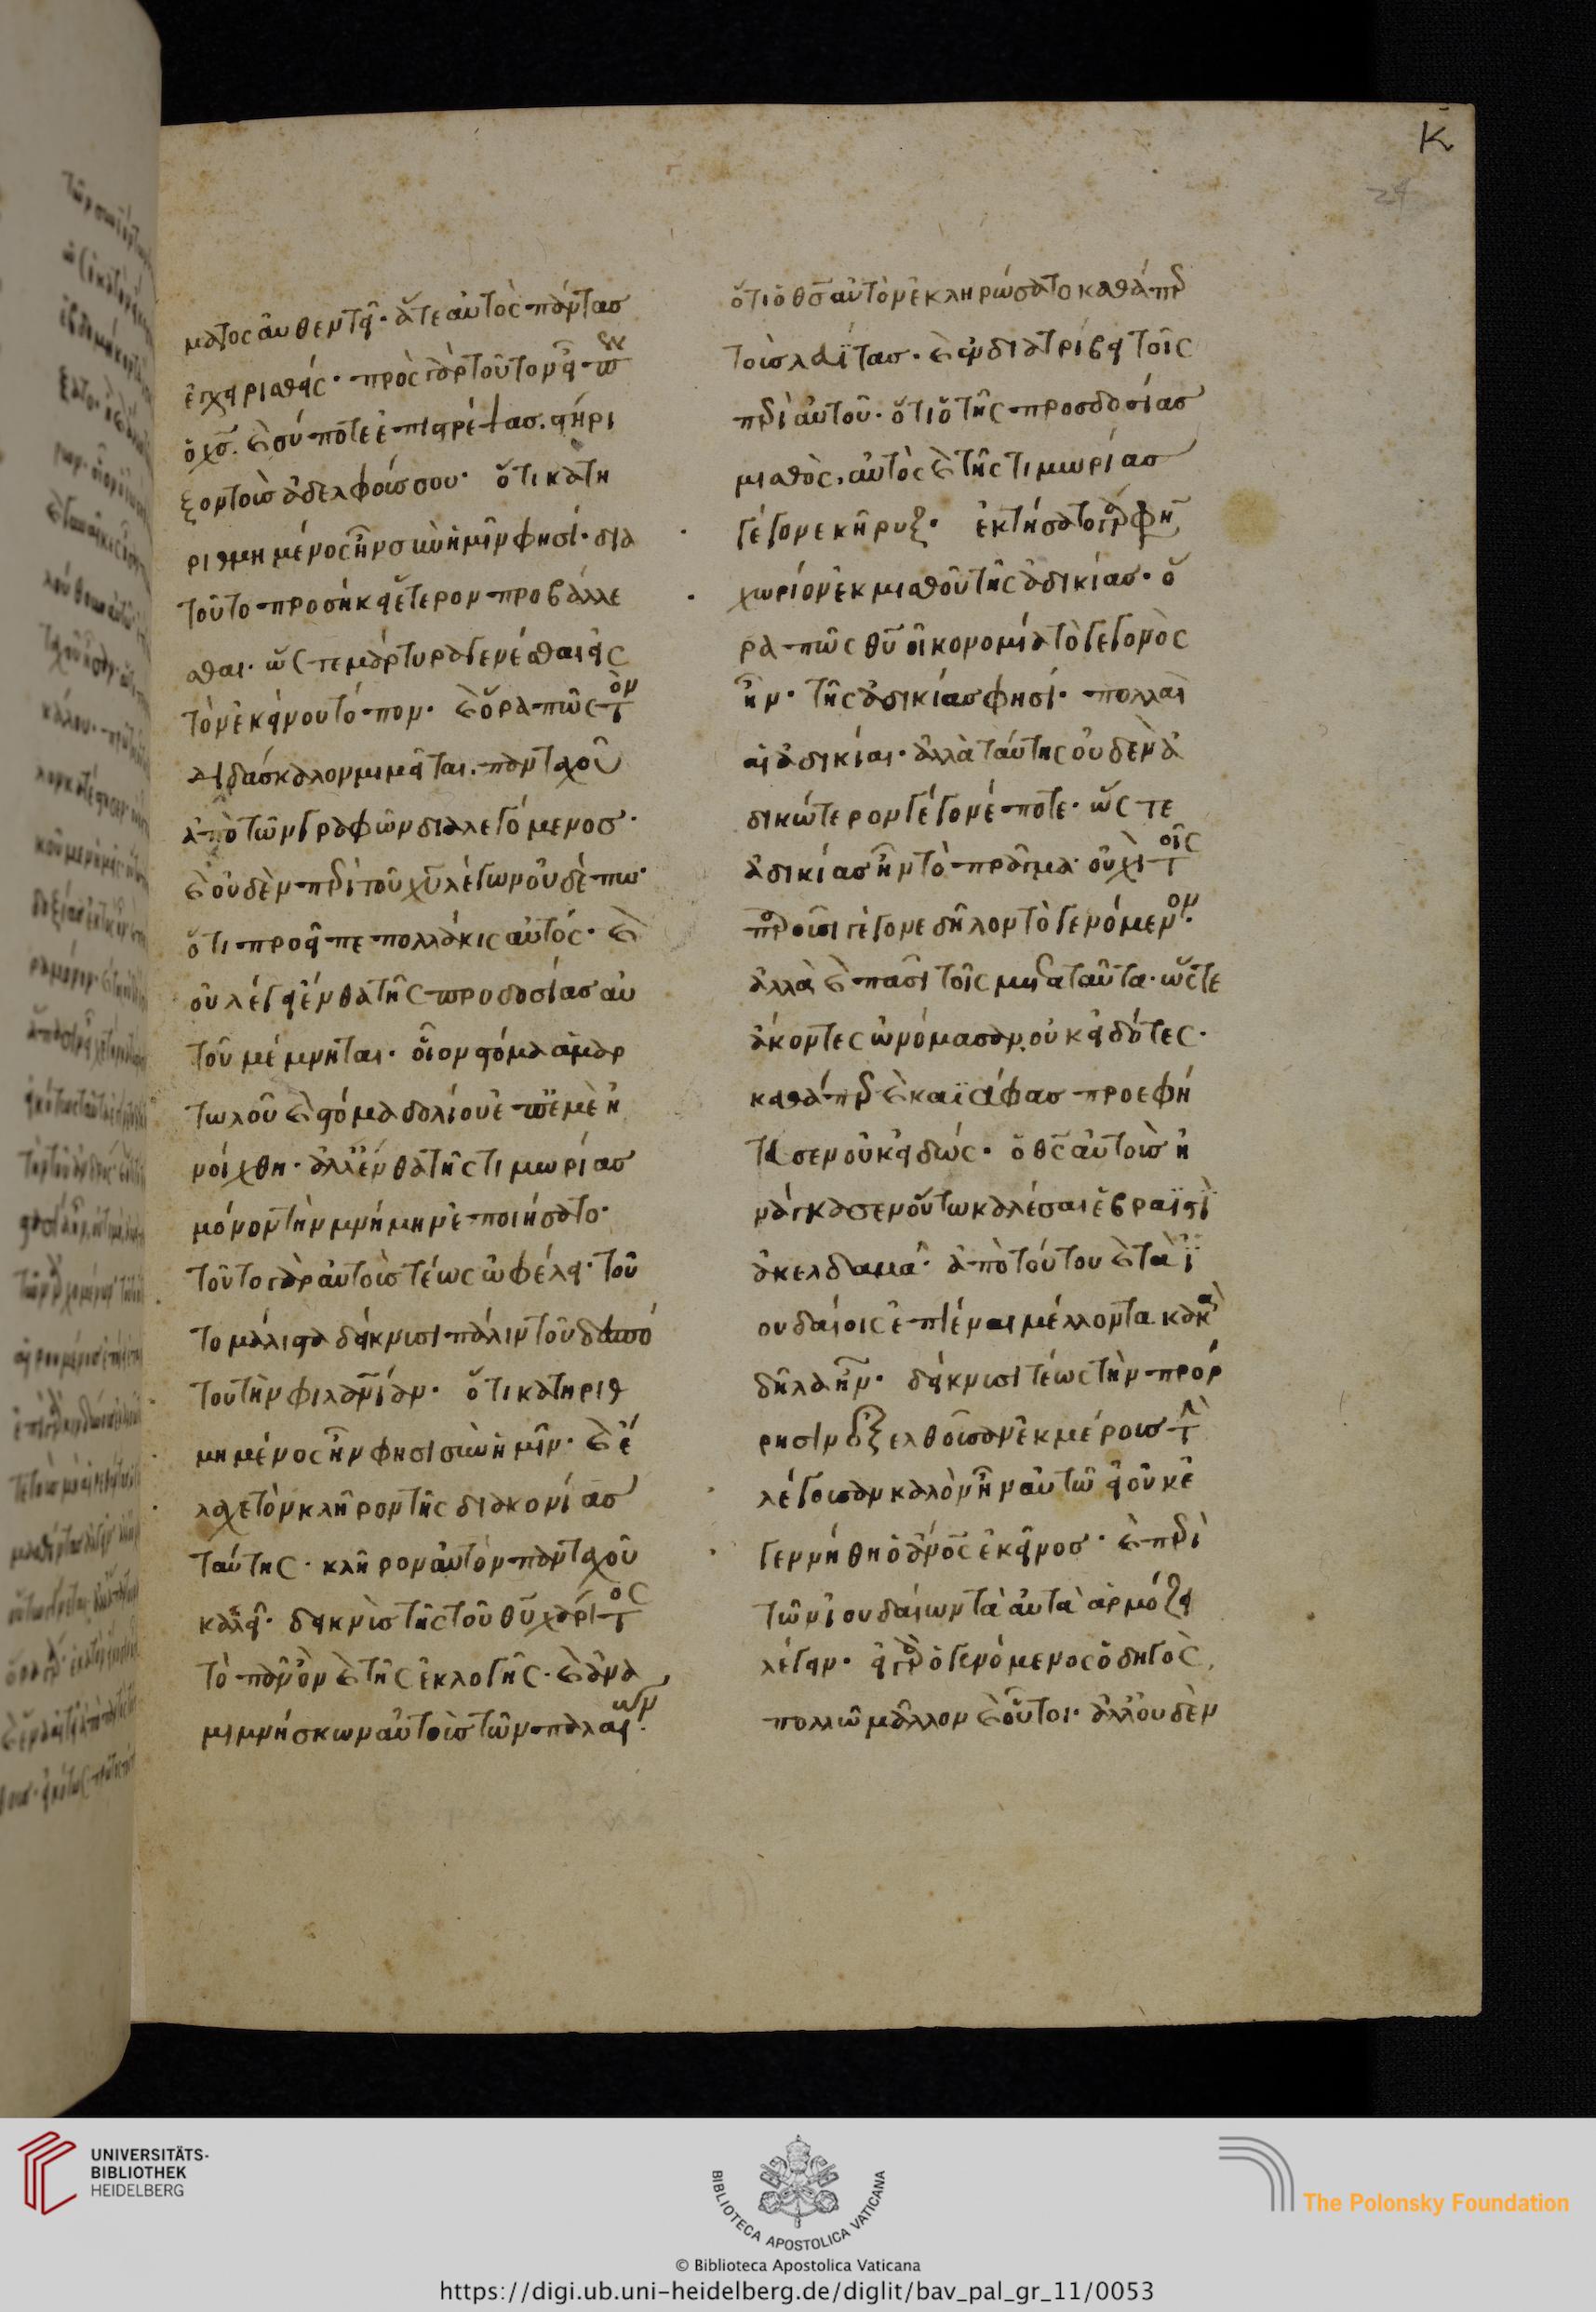 Κ
24
ματος αὐθεντεῖ· ἅτε αὐτὸς πάντας
ἐγχειρισθείς· πρὸς γὰρ τοῦτον εἶπεν
ὁ χς̄. καὶ σύ ποτε ἐπιστρέψας. στήρι
ξον τοὺς ἀδελφούς σου· ὅτι κατη
ριθμημένος ἦν σὺν ἡμῖν φησί· διὰ
τοῦτο προσήκει ἕτερον προβάλλε
σθαι. ὥστε μάρτυρα γενέσθαι εἰς
τὸν ἐκείνου τόπον. καὶ ὅρα πῶς τὸν
διδάσκαλον μιμεῖται. πανταχοῦ
ἀπὸ τῶν γραφῶν διαλεγόμενος·
καὶ οὐδὲν περὶ τοῦ χῦ λέγων οὐδέπω·
ὅτι προεῖπε πολλάκις αὐτός· καὶ
οὐ λέγει ἔνθα τῆς προδοσίας αὐ
τοῦ μέμνηται. οἷον στόμα ἁμαρ
τωλοῦ καὶ στόμα δολίου ἐπ' ἐμὲ ἠ
νοίχθη· ἀλλ' ἔνθα τῆς τιμωρίας
μόνον τὴν μνήμην ἐποιήσατο·
τοῦτο γὰρ αὐτοὺς τέως ὠφέλει· τοῦ
το μάλιστα δείκνυσι πάλιν τοῦ δεσπό
του τὴν φιλανίαν· ὅτι κατηριθ
μημένος ἦν φησι σὺν ἡμῖν. καὶ ἔ
λαχε τὸν κλῆρον τῆς διακονίας
ταύτης. κλῆρον αὐτὸν πανταχοῦ
καλεῖ. δεικνὺς τῆς τοῦ θῦ χάριτος
τὸ πᾶν ὂν καὶ τῆς ἐκλογῆς. καὶ ἀνα
μιμνήσκων αὐτοὺς τῶν παλαιῶν.
ὅτι ὁ θς̄ αὐτὸν ἐκληρώσατο καθάπερ
τοὺς λευΐτας. καὶ ἐνδιατρίβει τοῖς
περὶ αὐτοῦ. ὅτι ὁ τῆς προδοσίας
μισθὸς, αὐτὸς καὶ τῆς τιμωρίας
γέγονε κῆρυξ. ἐκτήσατο γὰρ φησὶ
χωρίον ἐκ μισθοῦ τῆς ἀδικίας. ὅ
ρα πῶς θῦ οἰκονομία τὸ γεγονὸς
ἦν. τῆς ἀδικίας φησί. πολλαὶ
αἱ ἀδικίαι. ἀλλὰ ταύτης οὐδὲν ἀ
δικώτερον γέγονέ ποτε. ὥστε
ἀδικίας ἦν τὸ πρᾶγμα· οὐχὶ τοῖς
παροῦσι γέγονε δῆλον τὸ γενόμενον·
ἀλλὰ καὶ πᾶσι τοῖς μετὰ ταῦτα. ὥστε
ἄκοντες ὠνόμασαν. οὐκ εἰδότες.
καθάπερ καὶ καϊάφας προεφή
τευσεν οὐκ εἰδώς. ὁ θς̄ αὐτοὺς ἠ
νάγκασεν οὕτω καλέσαι ἑβραϊστὶ
ἀκελδαμά. ἀπὸ τούτου καὶ τὰ ἰ
ουδαίοις ἐπιέναι μέλλοντα κακὰ
δῆλα ἦν. δείκνυσι τέως τὴν πρόρ
ρησιν ἐξελθοῦσαν ἐκ μέρους τὴν
λέγουσαν καλὸν ἦν αὐτῶ εἰ οὐκ ἐ
γεννήθη ὁ ἀνος̄ ἐκεῖνος. καὶ περὶ
τῶν ἰουδαίων τὰ αὐτὰ ἁρμόζει
λέγειν. εἰ γὰρ ὁ γενόμενος ὁδηγὸς,
πολλῶ μᾶλλον καὶ οὗτοι. ἀλλ' οὐδὲν
UNIVERSITÄTS-
BIBLIOTHEK
HEIDELBERG
BIBLIOTECA APOSTOLICA VATICANA
The Polonsky Foundation
© Biblioteca Apostolica Vaticana
https://digi.ub.uni-heidelberg.de/diglit/bav_pal_gr_11/0053